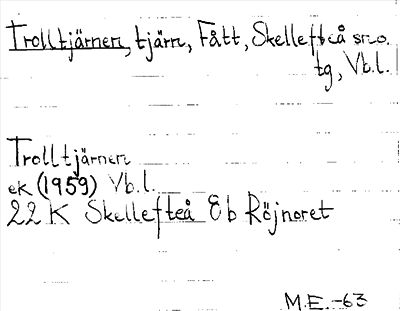 Trolltjärnen, tjärn, Fått, Skellefteå sno.
tg, Vb.l.
Trolltjärnen
ek (1959) Vb.l.
22 K Skellefteå 8b Röjnoret
M.E.-63